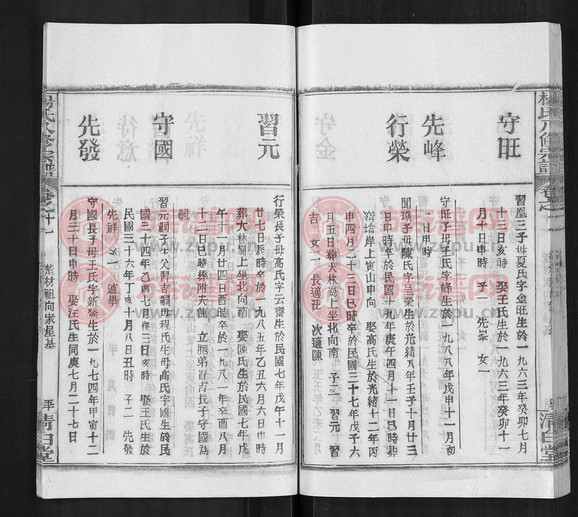 楊氏八修宗譜
卷之十一
清白堂
守旺
習凰三子 母夏氏字金旺生於一九六三年癸卯七月
十三日亥時 娶王氏生於一九六三年癸卯十一
月十日申時 子一 先峯 女一
先峰
守旺子母王氏字峰生於一九八八年戊申十一月初
二日申時
行榮
聞 子母陳氏字 榮生於光緒八年壬子十月廿三
日申時卒於民國十九年庚午四月十一日巳時葬
塆岸上寅山申向 娶高氏生於光緒十二年丙
申四月二十二日巳時卒於民國三十七年戊子六
月五日葬大林 上坐北向南 子二 習元 習
吉 女一 長適汪 次適陳
習元
行榮長子母高氏字云齋生於民國七年戊午十一月
廿七日辰時卒於一九八五年乙丑六月六日申時
葬大林 上坐北向南 娶陳氏生於民國七年戊
午十二月廿四日酉時卒於一九八一年辛酉八月
十二日巳時葬附夫 立胞弟習吉長子守國為
嗣
守國
習元嗣子生父習吉嗣母程氏生母高氏字國生於民
國三十四年乙酉七月初三日亥時 娶王氏生於
民國三十六年丁亥十月八日丑時 子二 先發
先祥 女一 適畢
先發
守國長子母王氏字新發生於一九七四年甲寅十二
月三十日申時 娶汪氏生同庚七月二十七日
楊氏八修宗譜
卷之十一
葉材祖向家屋基
清白堂